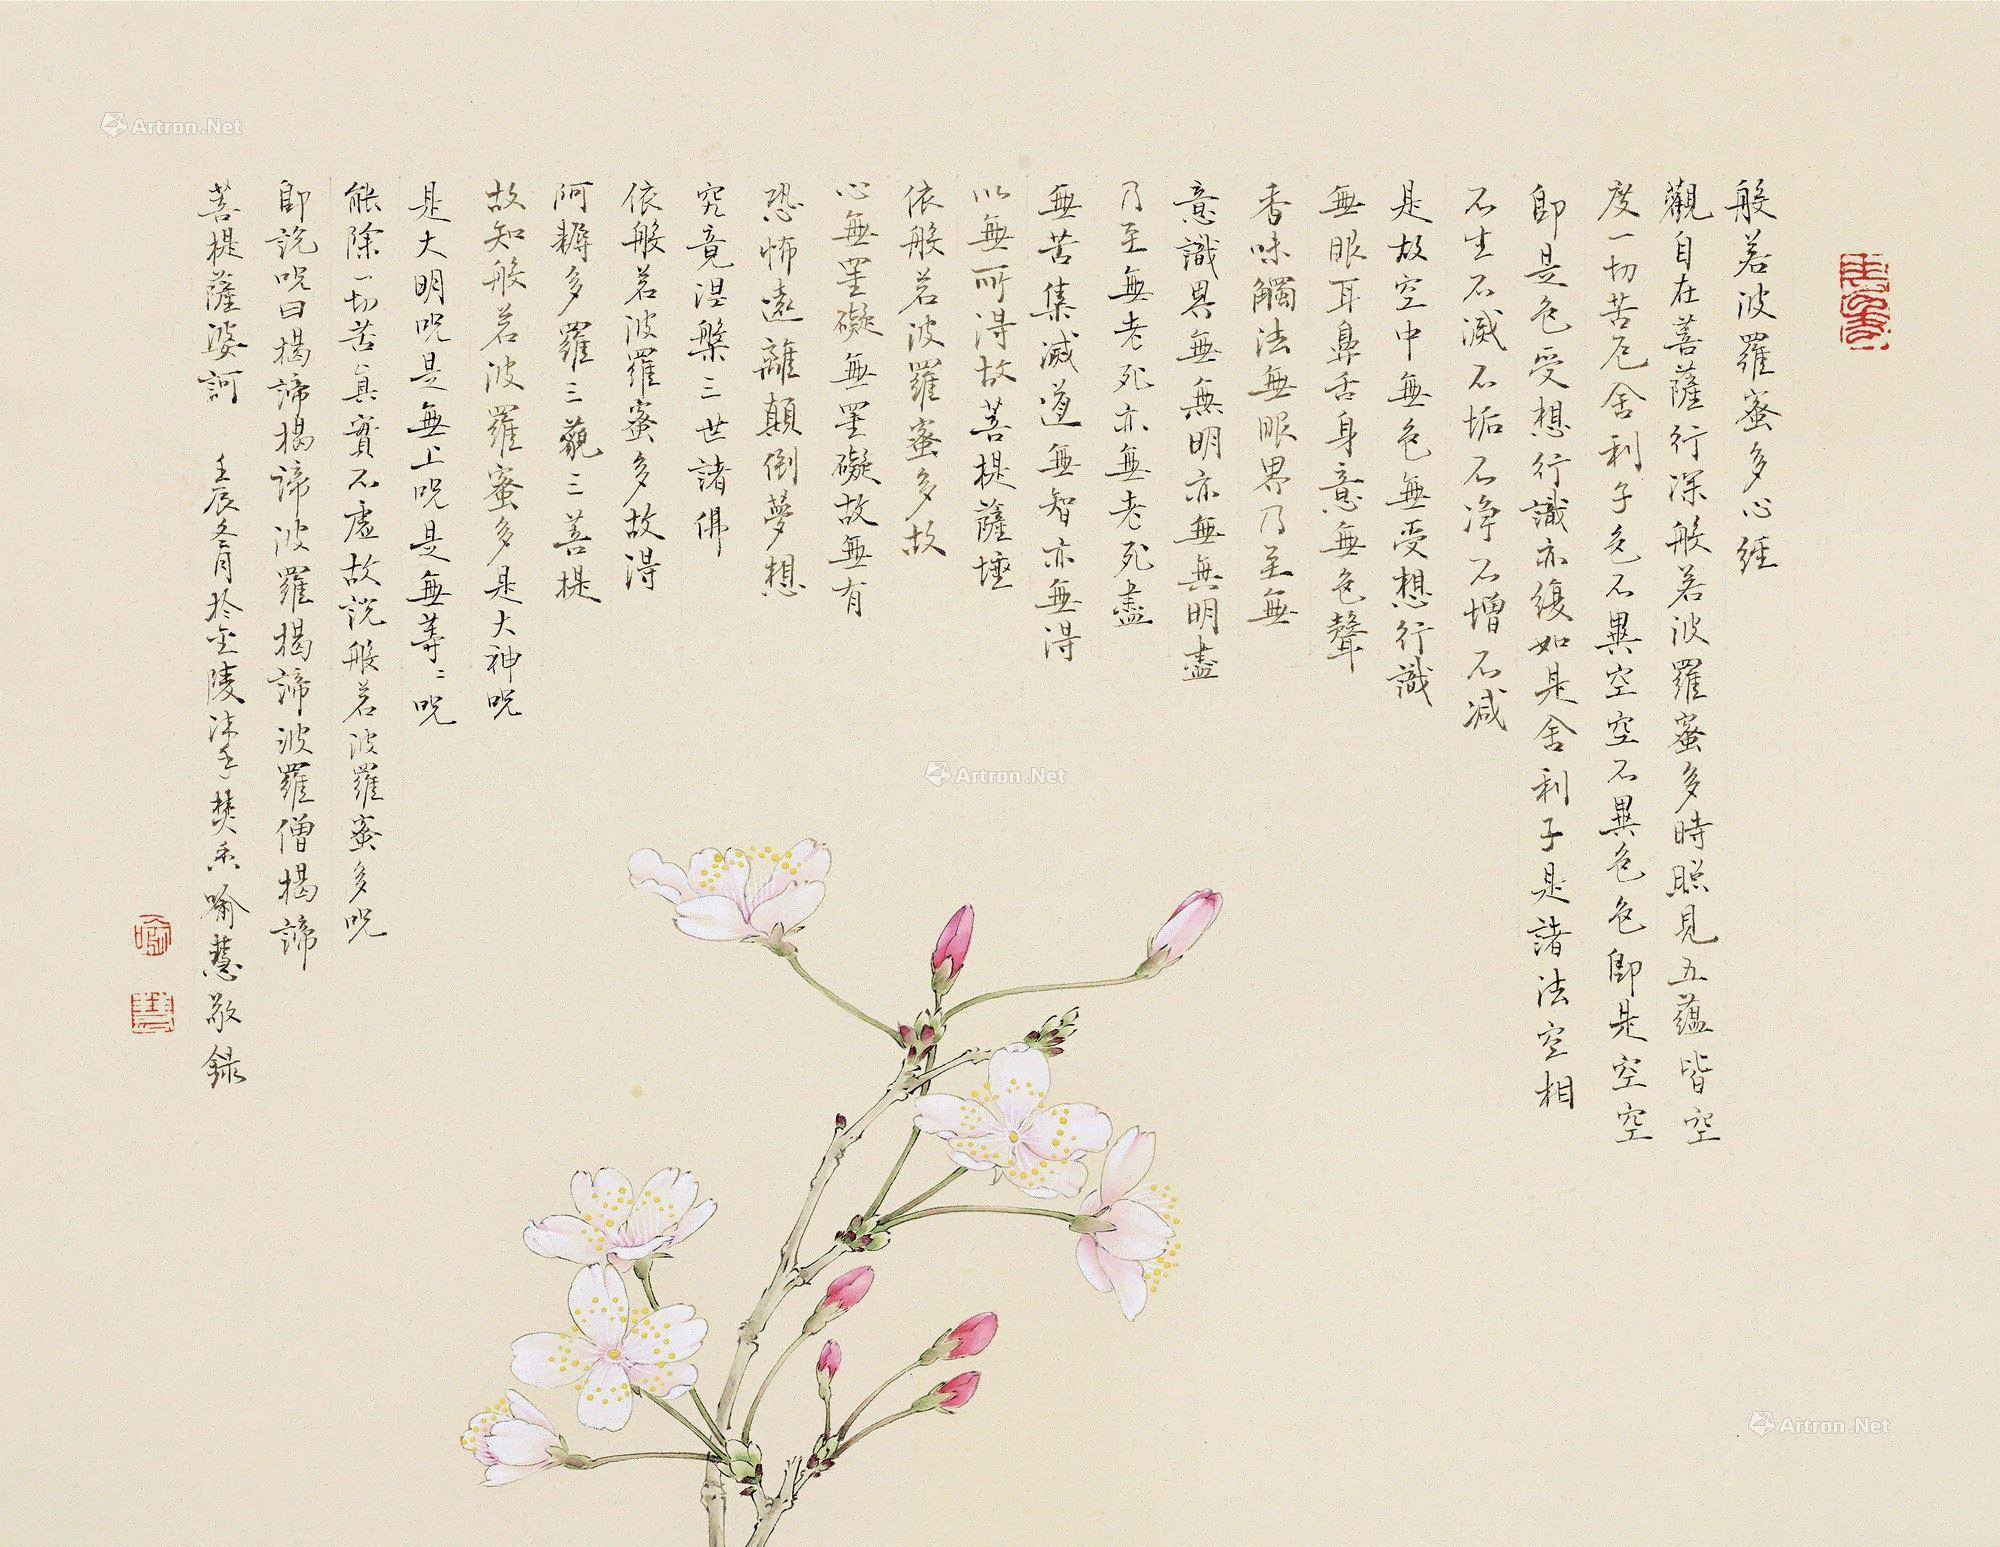 般若波羅蜜多心經
觀自在菩薩行深般若波羅蜜多時照見五蘊皆空
度一切苦厄舍利子色不異空空不異色色即是空空
即是色受想行識亦復如是舍利子是諸法空相
不生不滅不垢不净不增不减
是故空中無色無受想行識
無眼耳鼻舌身意無色聲
香味觸法無眼界乃至無
意識界無無明亦無無明盡
乃至無老死亦無老死盡
無苦集滅道無智亦無得
以無所得故菩提薩埵
依般若波羅蜜多故
心無罣礙無罣礙故無有
恐怖遠離顛倒夢想
究竟涅槃三世諸佛
依般若波羅蜜多故得
阿耨多羅三藐三菩提
故知般若波羅蜜多是大神呪
是大明呪是無上呪是無等〻呪
能除一切苦真實不虛故說般若波羅蜜多呪
即說呪曰揭諦揭諦波羅揭諦波羅僧揭諦
菩提薩婆訶 壬辰冬月於金陵沐手焚香喻慧敬録
喻
慧
Artron.Net
Artron.Net
Artron.Net